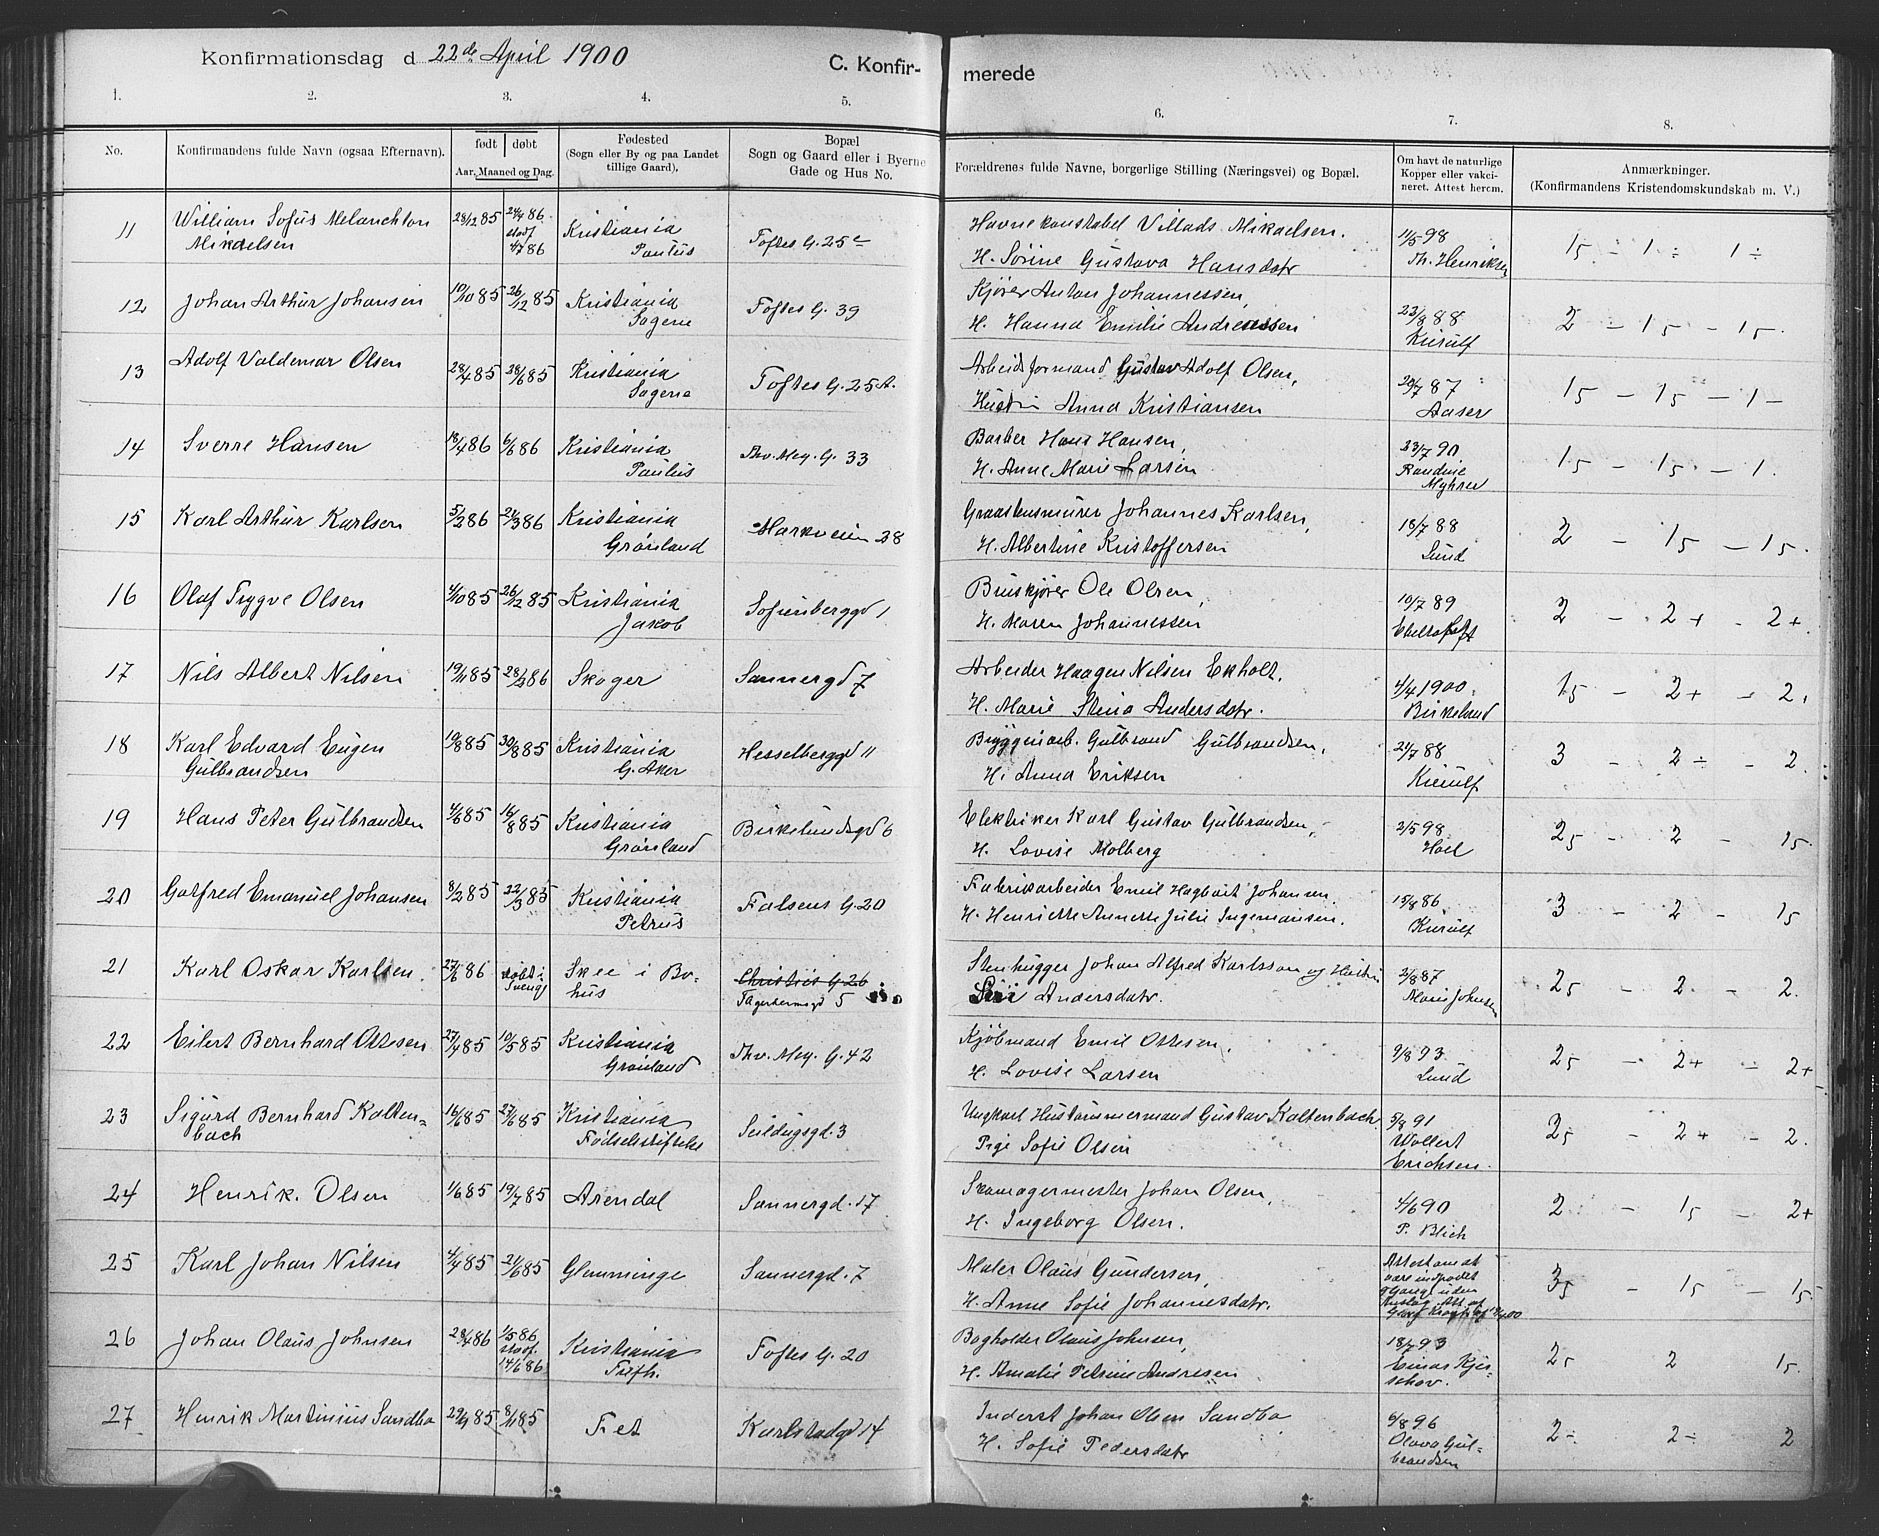 Konfirmationsdag d 22de April 1900
C. Konfir- merede
1. 2. 3. 4. 5. 6. 7. 8.
No.
Konfirmandens fulde Navn (ogsaa Efternavn).
født døbt
Aar, Maaned og Dag.
Fødested
(Sogn eller By og paa Landet
tillige Gaard).
Bopæl
Sogn og Gaard eller i Byerne
Gade og Hus No.
Forældrenes fulde Navne, borgerlige Stilling (Næringsvei) og Bopæl.
Om havt de naturlige
Kopper eller vakci-
neret. Attest hercm.
Anmærkninger.
(Konfirmandens Kristendomskundskab m. V.)
11 William Sofus Melanchton
Mikaelsen
28/12 85 24/4 86. stadf 4/7 86
Kristiania
Paulus
Toftes G. 25c
Havnekonstabel Villads Mikaelsen.
H. Sørine Gustava Hansdatr
11/5 98
Th. Henriksen
15 ÷ 1 ÷ 1 ÷
12 Johan Arthur Johansen
10/10 85 26/12 85
Kristiania
Sagene
Toftes G. 39
Kjører Anton Johannessen,
H. Hanna Emilie Andreassen
23/8 88
Kierulf
2 - 15 - 15.
13 Adolf Valdemar Olsen
28/4 85 28/6 85
Kristiania
Sagene
Toftes G. 25 A.
Arbeidsformand Gustav Adolf Olsen,
Hustru Anna Kristiansen
20/7 87
Aaser
15 - 15 - 1 -
14 Sverre Hansen
18/4 86 6/6 86
Kristiania
Paulus
Thv. Mey. G. 33
Barber Hans Hansen,
H. Anne Marie Larsen
23/7 90
Randine
Myhrer
15 - 15 - 1
15 Karl Arthur Karlsen
5/2 86 21/3 86
Kristiania
Grønland
Markveien 28
Graastensmurer Johannes Karlsen,
H. Albertine Kristoffersen
18/7 88
Lund
2 - 15 - 15.
16 Olaf Trygve Olsen
4/10 85 26/12 85
Kristiania
Jakob
Sofienberggd 1
Bruskjører Ole Olsen,
H. Maren Johannessen
10/7 89
Ebeltoft
2 - 2+ - 2+.
17 Nils Albert Nilsen
19/11 85 28/2 86
Skoger
Sannergd 7
Arbeider Haagen Nilsen Ekholt.
H. Marie Stina Andersdatr.
4/4 1900.
Birkeland
15 - 2+ - 2+
18 Karl Edvard Eugen
Gulbrandsen
19/8 85 30/8 85
Kristiania
G. Aker
Hesselberggd 11
Bryggeriarb. Gulbrand Gulbrandsen,
H. Anna Eriksen
21/7 88
Kierulf
3 - 2 ÷ - 2.
19 Hans Peter Gulbrandsen
4/6 85 16/8 85
Kristiania
Grønland
Birkelundsgd 6
Elektriker Karl Gustav Gulbrandsen,
H. Lovise Molberg
2/5 98
Hoel
25 - 2 - 15.
20 Gotfred Emanuel Johansen
8/2 85 22/3 85
Kristiania
Petrus
Falsens G. 20
Fabrikarbeider Emil Hagbart Johansen.
H. Henriette Annette Julie Ingemansen.
15/8 86
Kierulf
3 - 2 - 15
21 Karl Oskar Karlsen
27/6 86 døbt i Sverige
Skee i Bo-
hus
Christies G 26
5
Stenhugger Johan Alfred Karlsson og Hustru
Andersdatr.
2/8 87
Marie Johnsen
25 - 2 - 2.
22 Eilert Bernhard Ottesen
27/4 85 10/5 85
Kristiania
Grønland
Thv. Mey. G. 42
Kjøbmand Emil Ottesen,
H. Lovise Larsen
9/8 93
Lund
25 - 2+ - 2+
23 Sigurd Bernhard Kalten-
bach
16/6 85 27/6 85
Kristiania
Fødselsstiftelse
Seildugsgd. 3
Ungkarl Hustømmermand Gustav Kaltenbach.
Pige Sofie Olsen
5/8 91
Wollert
Erichsen.
25 - 2+ - 2.
24 Henrik. Olsen
1/6 85 19/7 85
Arendal
Sannergd. 17
Skomagermester Johan Olsen,
H. Ingeborg Olsen.
4/6 90
P. Blich
2 - 15 - 2+
25 Karl Johan Nilsen
4/4 85 21/6 85
Glemminge
Sannergd. 7
Maler Olaus Gundersen,
H. Anne Sofie Johannesdatr.
Attest om at
være indpodet
gange uden
35 - 15 - 15.
26 Johan Olaus Johnsen
28/4 86 1/5 86 stadf. 14/6 86
Kristiania
Trefh.
Toftes G. 20
Bogholder Olaus Johnsen,
H. Amalie Petrine Andresen
18/7 93
Einar Kjer-
schow.
25 2 15.
27 Henrik Martinius Sandbo
29/9 85 8/11 85
Fet
Karlstadgd 14
Inderst Johan Olsen Sandbo
H. Sofie Pedersdatr
6/8 96
Olava Gul-
brandsen
2 ÷ 2 ÷ 2